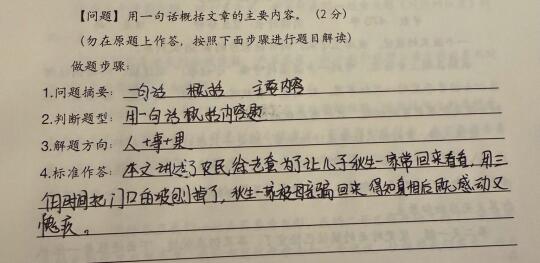 【问题】用一句话概括文章的主要内容。（2分）
（勿在原题上作答，按照下面步骤进行题目解读）
做题步骤：
1.问题摘要：一句话 概括 主要内容
2.判断题型：用一句话概括内容题
3.解题方向：人+事+果
4.标准作答：本文讲述了农民徐老套为了让儿子秋生一家常回来看看，用三
个月时间把门口的坡刨掉了，秋生一家被母亲骗回来 得知真相后既感动又
愧疚。